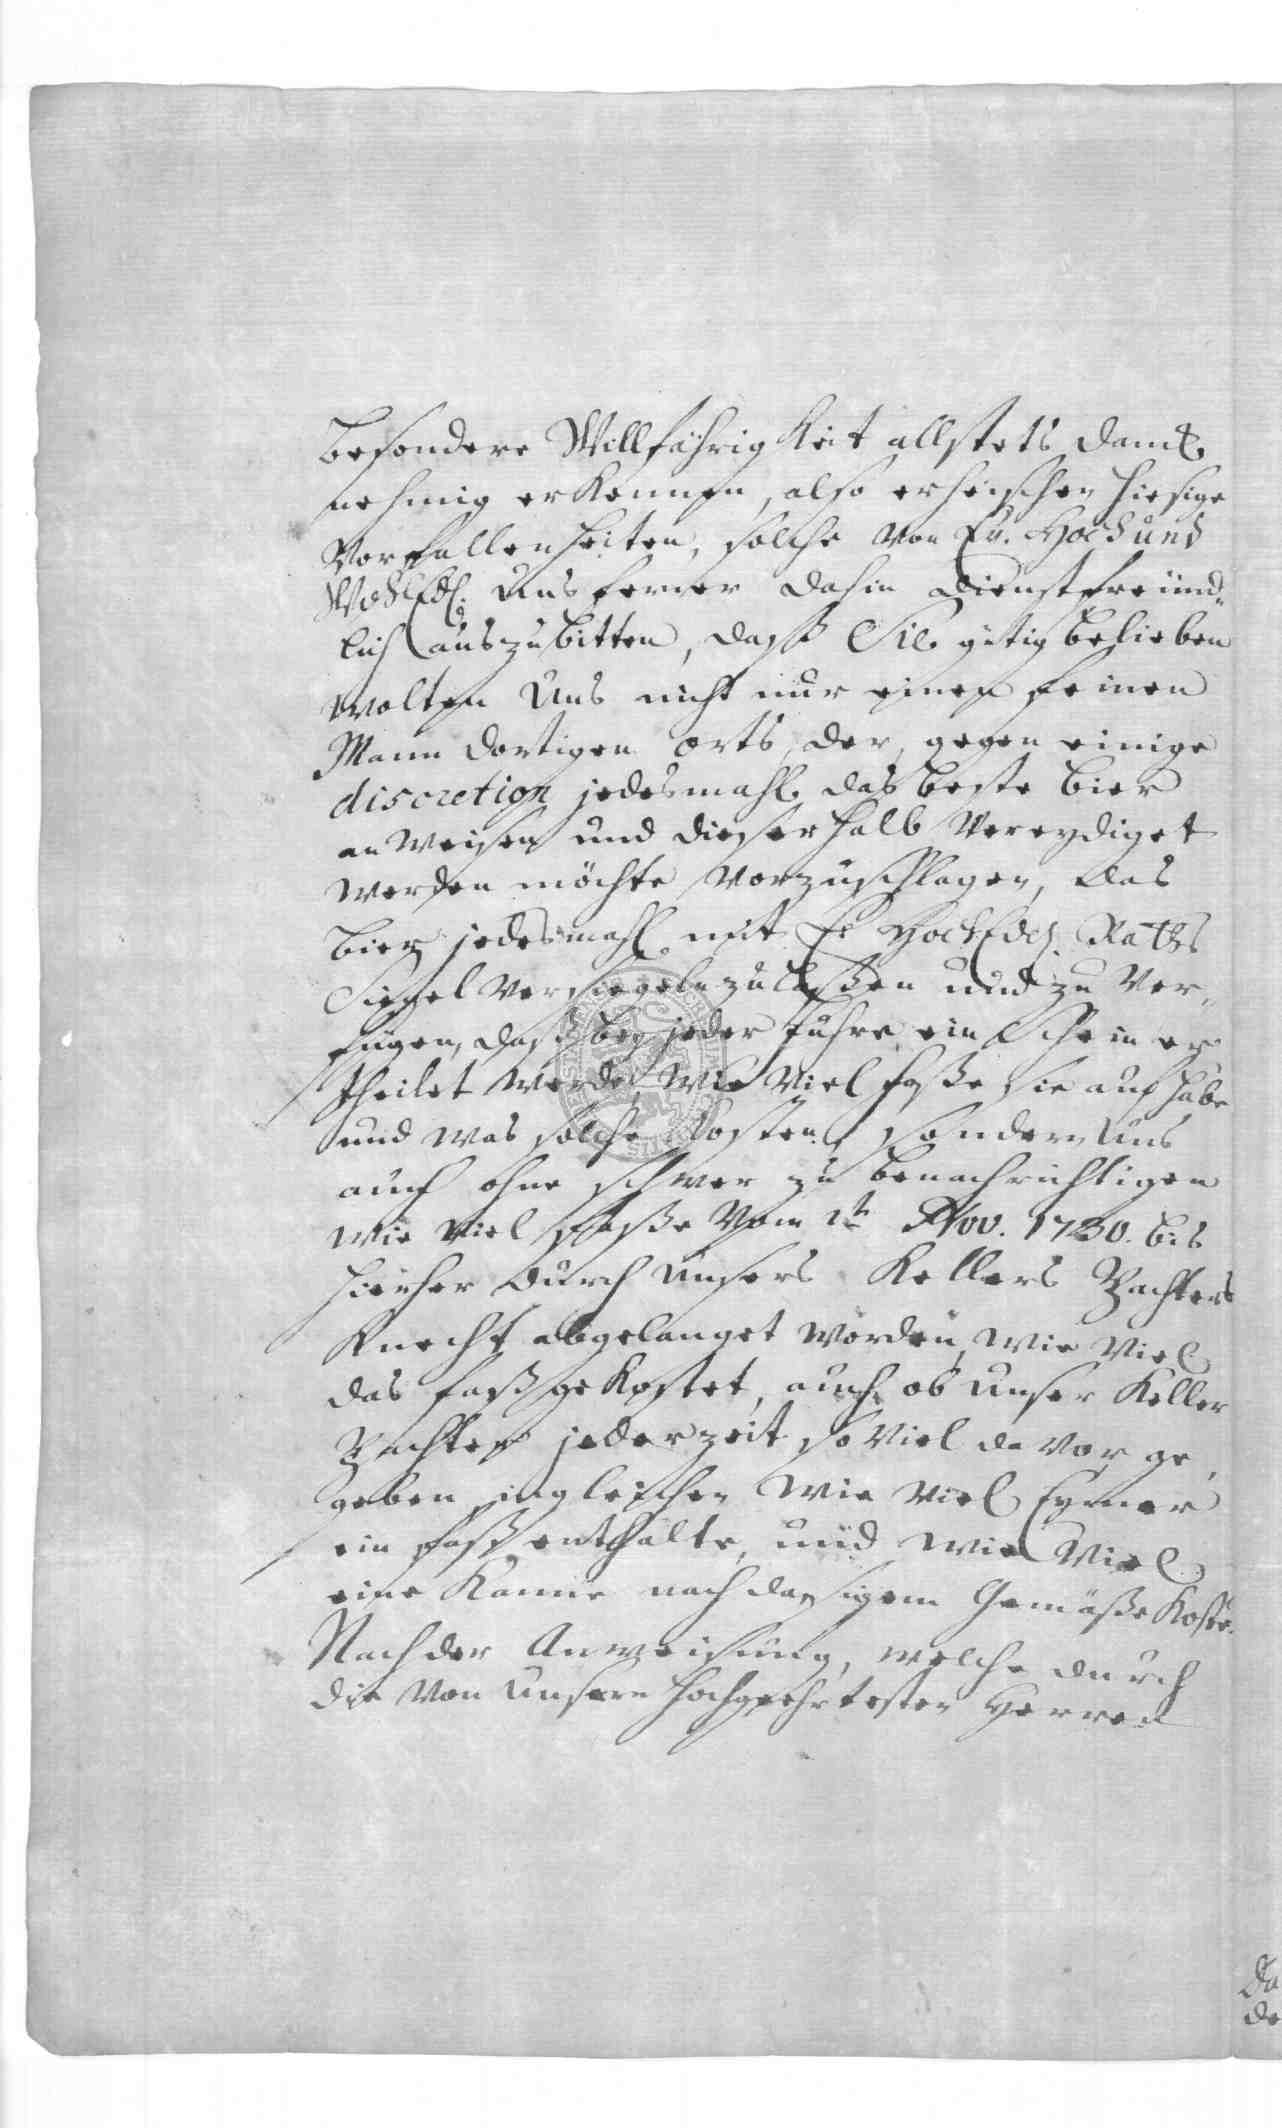 besondere Willfährigkeit allstets danck
nehmig erkennen, also erheischen hiesige
Vorfallenheiten, solche von Ew. Hoch und
WohlEdl. uns ferner dahin dienstfreünd„
lich auszubitten, daß Sie gütig belieben
wolten uns nicht nur einen feinen
Mann dortigen orts, der, gegen einige
discretion jedesmahl das beste bier
anweisen und dieserhalb vereydiget
werden möchte vorzuschlagen, das
bier jedesmahl mit Es HochEdl. Raths
Siegel versiegeln zulaßen und zu ver„
fügen, daß bey jeder fuhre ein Schein er
theilet werde, wie viel faße sie auf habe
und was solche kosten, sondern uns
auch ohne schwer zu benachrichtigen
wie viel faße vom 1ten Nov. 1730. bis
hieher durch unsers Kellers Pachters
Knecht abgelanget worden, wie viel
das faß gekostet, auch ob unser Keller
Pachter jederzeit so viel davor ge„
geben, ingleichen wie viel Eymer
ein faß enthalte, und wie viel
eine Kanne nach dasigem Gemäße koste.
Nach der Anweisung, welche durch
die von unsern hochgeehrtesten Herren
Da
de